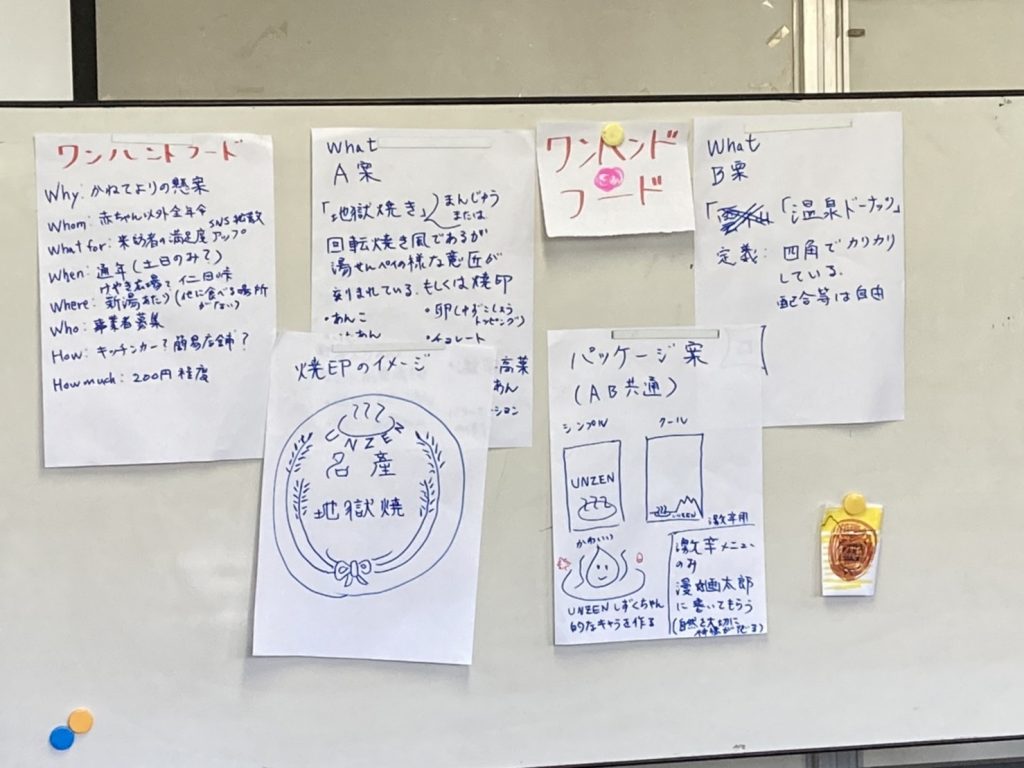 ワンハンドフード
Why: かねてよりの懸案
Whom: 赤ちゃん以外全年令
What for: 来訪者の満足度アップ
SNS拡散
When: 通年(土日のみで)
けやき広場? 仁田峠
Where: 新湯あたり(他に食べる場所がない)
Who: 事業者募集
How: キッチンカー? 簡易店舗?
How much: 200円程度
What
A案
「地獄焼き」 まんじゅう
または
回転焼き風であるが
湯せんペイの様な意匠が
刻まれている. もしくは焼印
・あんこ
・卵(ゆずこしょう
トッピング)
あん
・チョレート
高菜
あん
ション
ワンハンド
フード
What
B案
「温泉ドーナッツ」
定義: 四角でカリカリ
している.
配合等は自由
焼EPのイメージ
UNZEN
名産
地獄焼
パッケージ案
(AB共通)
シンプル
クール
UNZEN
UNZEN
激辛用
かわいい
UNZENしずくちゃん
的なキャラを作る
激辛メニュー
のみ
漫☆画太郎
に書いてもらう
(自然を大切に